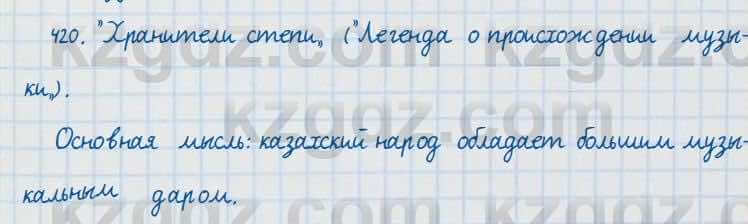 420. "Хранители степи„ ("Легенда о происхождении музы-
ки„).
Основная мысль: казахский народ обладает большим музы-
кальным даром.
kzgdz.com kzgdz.com
kzgdz.com
kzgdz.com kzgdz.com